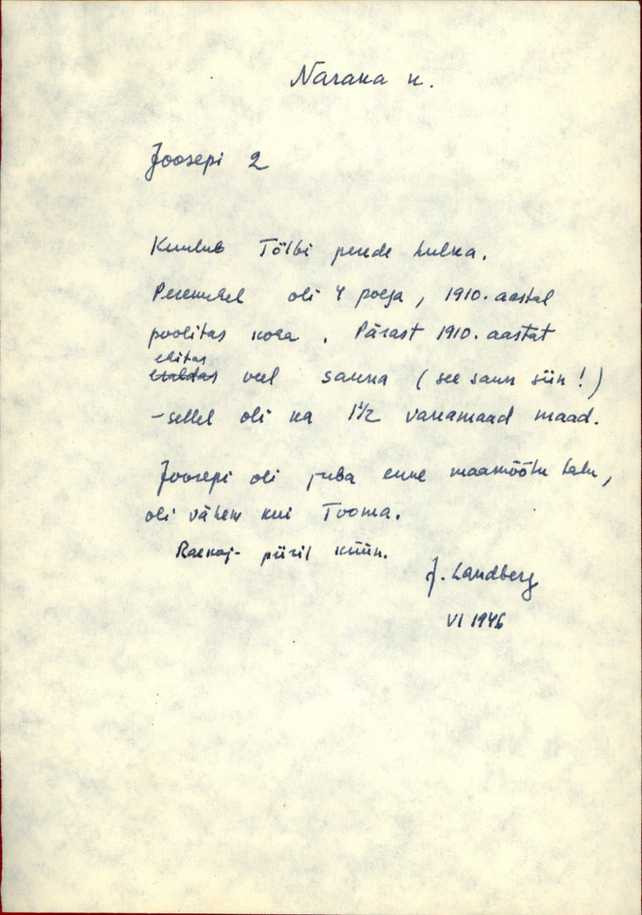 Naraka k.
Joosepi 2
Kuulub Tõlbi perede hulka.
Peremehel oli 4 poega, 1910. aastal
poolitas koha. Pärast 1910. aastat
ehitas
veel sauna (see saun siin!)
- sellel oli ka 1 1/2 vakamaad maad.
Joosepi oli juba enne maamõõtu talu,
oli vähem kui Tooma.
piiril küün.
J. Landberg
VI 1946